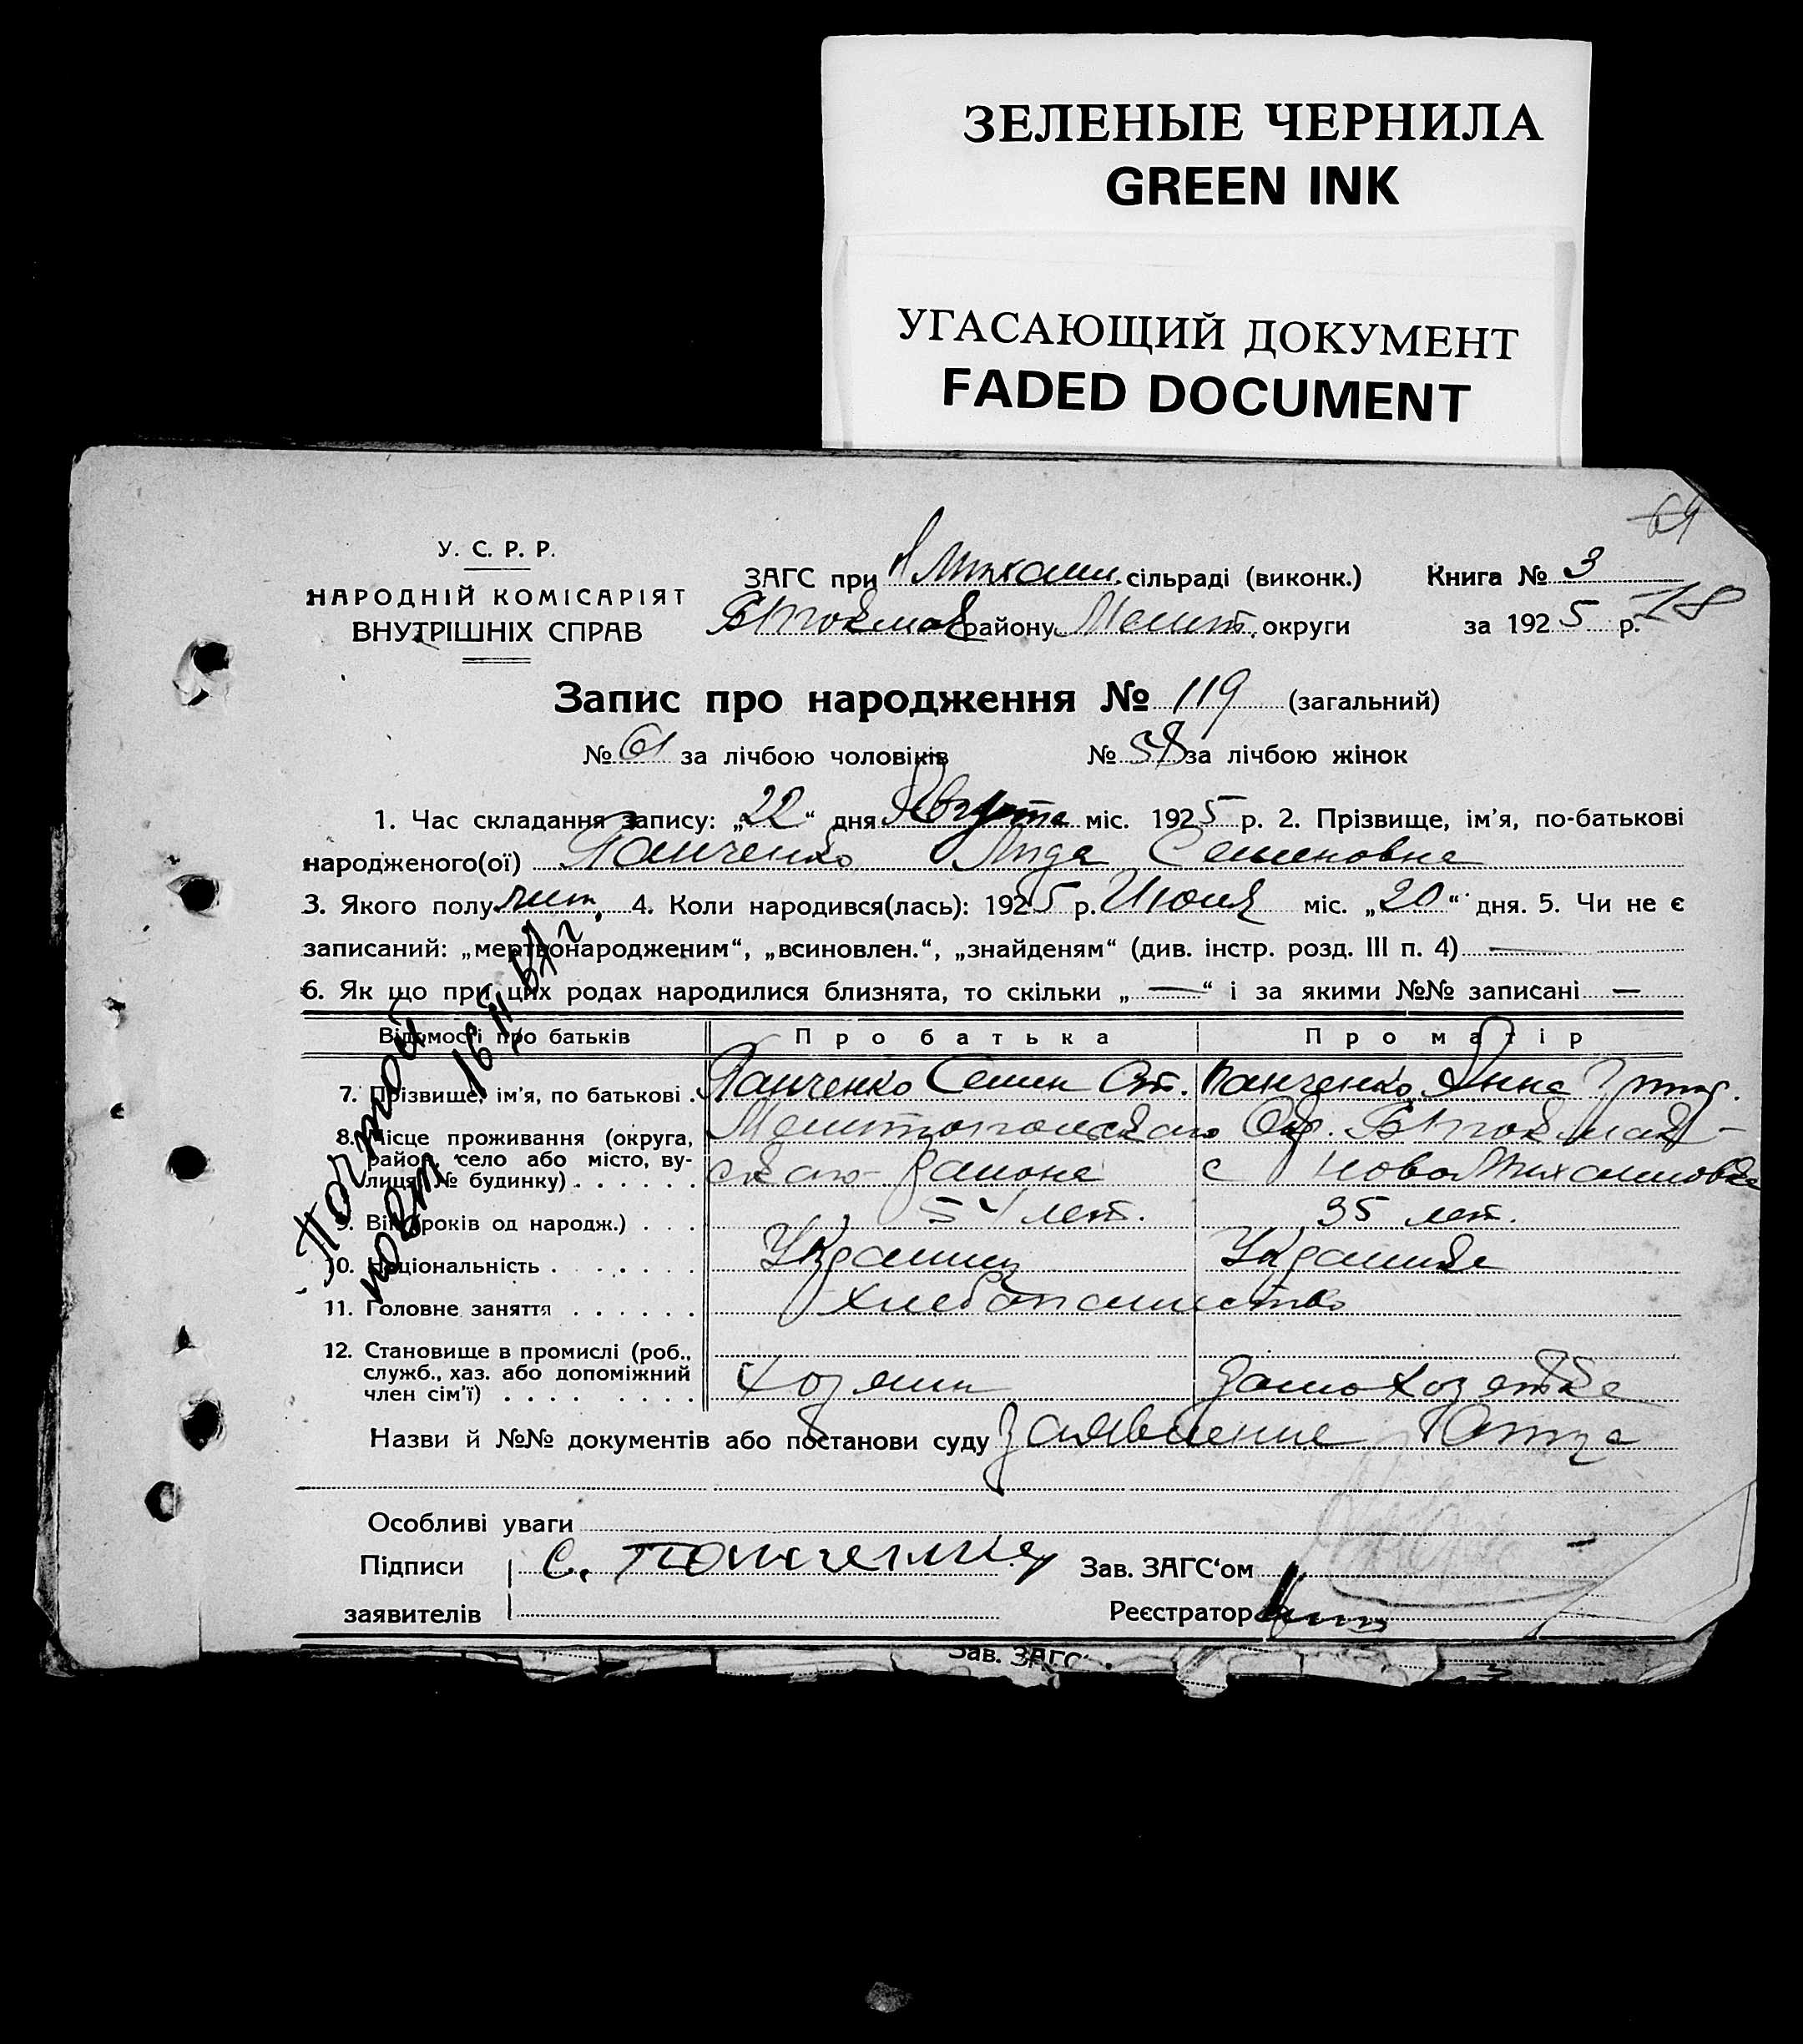 ЗЕЛЕНЫЕ ЧЕРНИЛА
GREEN INK
УГАСАЮЩИЙ ДОКУМЕНТ
FADED DOCUMENT
64
У. С. Р. Р.
НАРОДНІЙ КОМІСАРІЯТ
ВНУТРІШНІХ СПРАВ
ЗАГС при Н Михайл. сільраді (виконк.) Книга № 3
БТокмак району Мелит. округи за 1925 р. 18
Запис про народження № 119 (загальний)
№ 61 за лічбою чоловіків № 58 за лічбою жінок
1. Час складання запису: „22“ дня Августа міс. 1925 р. 2. Прізвище, ім’я, по-батькові
народженого(ої) Панченко Лида Семеновна
3. Якого полу 4. Коли народився(лась): 1925 р. міс. „20“ дня. 5. Чи не є
записаний: „мертвонародженим“, „всиновлен.“, „знайденям“ (див. інстр. розд. III п. 4) —
6. Як що при цих родах народилися близнята, то скільки „—“ і за якими №№ записані —
Відомості про батьків Про батька Про матір
7. Прізвище, ім’я, по батькові . Панченко Семен Панченко Анна Григ.
8. Місце проживання (округа, район, село або місто, вулиця, № будинку) . . . . . . Мелитопольского Окр. БТокмак-
ского района с НовоМихайловка
9. Вік (років од народж.) . . . 54 лет. 35 лет.
10. Національність . . . . . . Украинец Украинка
11. Головне заняття . . . . . . Хлебопашество
12. Становище в промислі (роб., служб., хаз. або допоміжний член сім’ї) . . . . . . . . Хозяин Домохозяйка
Назви й №№ документів або постанови суду Заявление Отца
Особливі уваги
Підписи С. Панченко Зав. ЗАГС‘ом
заявителів Реєстратор
Повторной
16 II 57 г.
Зав. ЗАГС‘